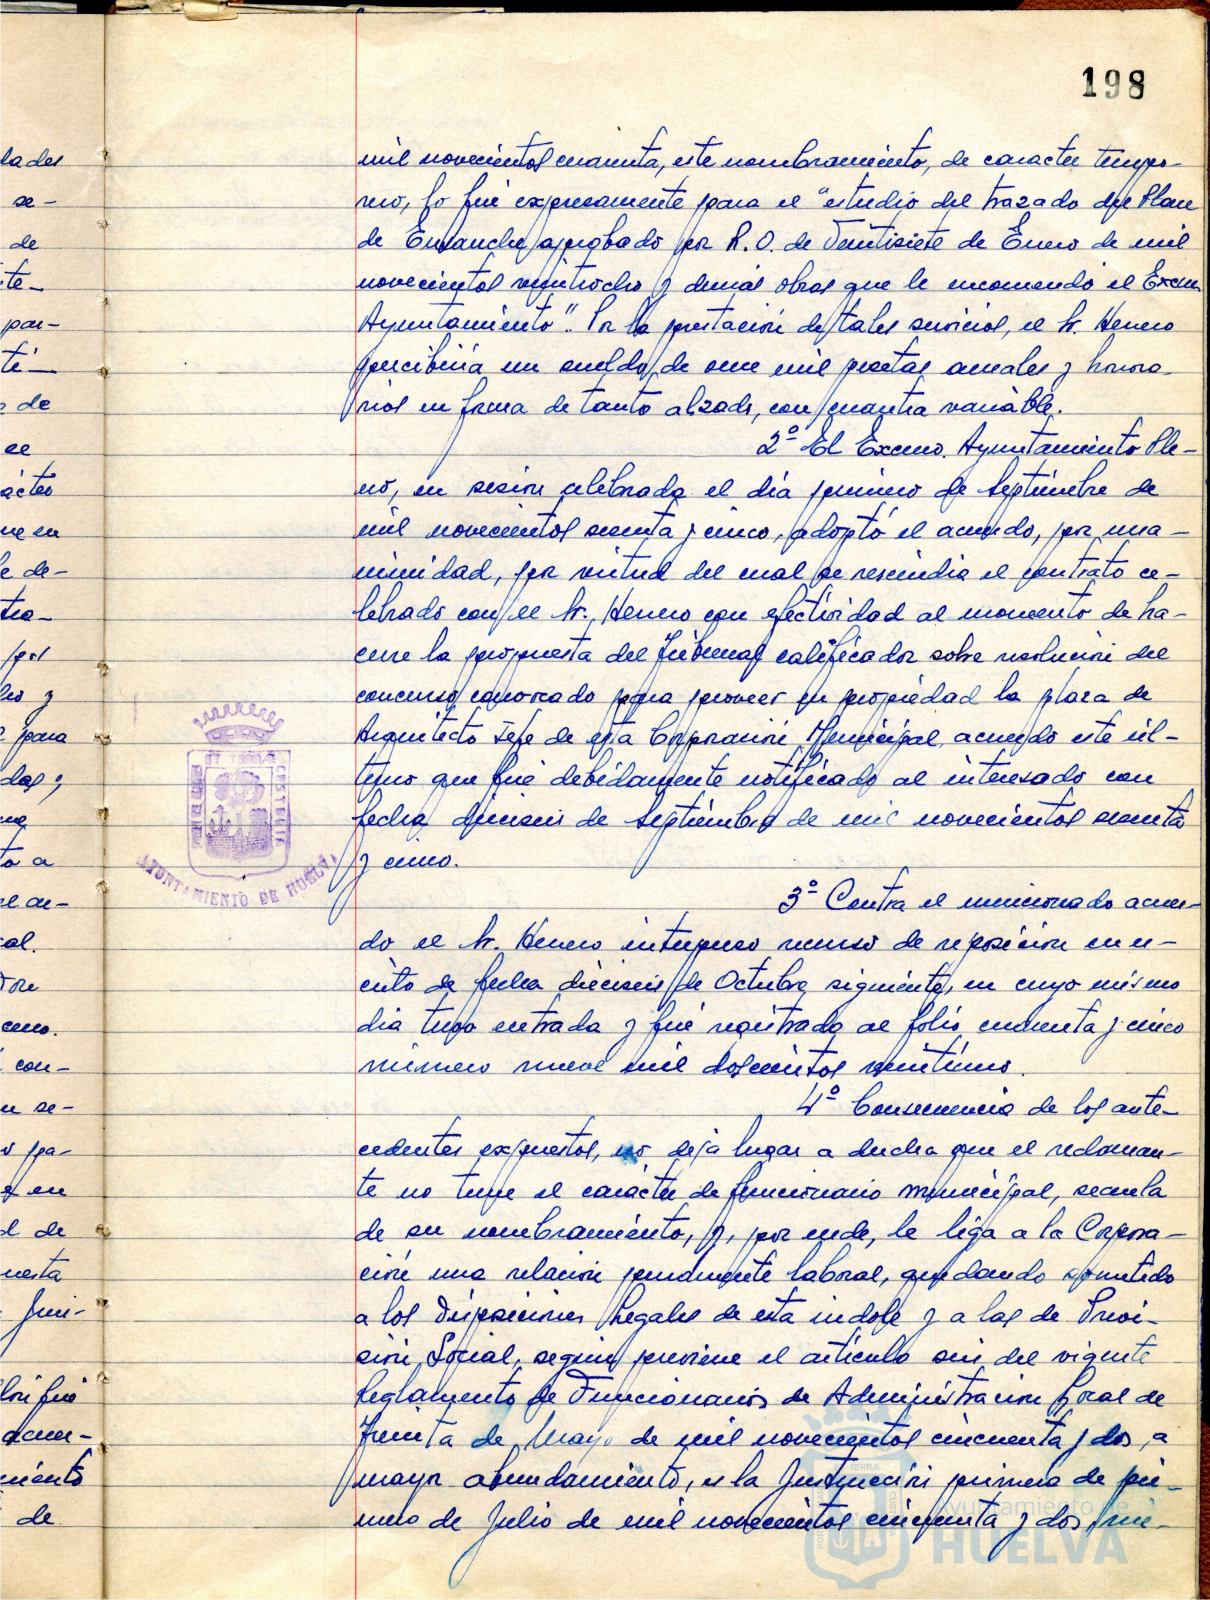 198
mil novecientos cuarenta, este nombramiento, de caracter tempo-
ral, lo fué expresamente para el "estudio del trazado del Plan
de Ensanche aprobado por R.O. de Veintisiete de Enero de mil
novecientos veintiocho y demás obras que le encomendó el Excmo
Ayuntamiento". Por la prestación de tales servicios, el Sr. Herrero
percibiría un sueldo de once mil pesetas anuales y honora-
rios en forma de tanto alzado, con cuantía variable.
2º El Excmo. Ayuntamiento Ple-
no, en sesión celebrada el día primero de Septiembre de
mil novecientos sesenta y cinco, adoptó el acuerdo, por una-
nimidad, por virtud del cual se rescindía el contrato ce-
lebrado con el Sr. Herrero con efectividad al momento de ha-
cerse la propuesta del Tribunal calificador sobre resolución del
concurso convocado para proveer en propiedad la plaza de
Arquitecto Jefe de esta Corporación Municipal, acuerdo este úl-
timo que fué debidamente notificado al interesado con
fecha dieciseis de Septiembre de mil novecientos sesenta
y cinco.
3º Contra el mencionado acuer-
do el Sr. Herrero interpuso recurso de reposición en es-
crito de fecha dieciseis de Octubre siguiente, en cuyo mismo
día tuvo entrada y fué registrado al folio cincuenta y cinco
número nueve mil doscientos veintiuno.
4º Consecuencia de los ante-
cedentes expuestos, no deja lugar a ducha que el reclaman-
te no tiene el carácter de funcionario municipal, secuela
de su nombramiento, y, por ende, le liga a la Corpora-
ción una relación puramente laboral, quedando sometido
a las Disposiciones Legales de esta indole y a las de Previ-
sión Social, según previene el artículo seis del vigente
Reglamento de Funcionarios de Administración Local de
Treinta de Mayo de mil novecientos cincuenta y dos, a
mayor abundamiento, es la Instrucción primera de pri-
mero de Julio de mil novecientos cincuenta y dos,
AYUNTAMIENTO DE HUELVA
Ayuntamiento de
HUELVA
lades
se-
de
te-
par-
de
se
que en
e de-
por
para
to a
con-
se-
pa-
en
de
uesta
fué
acuer-
miento
de